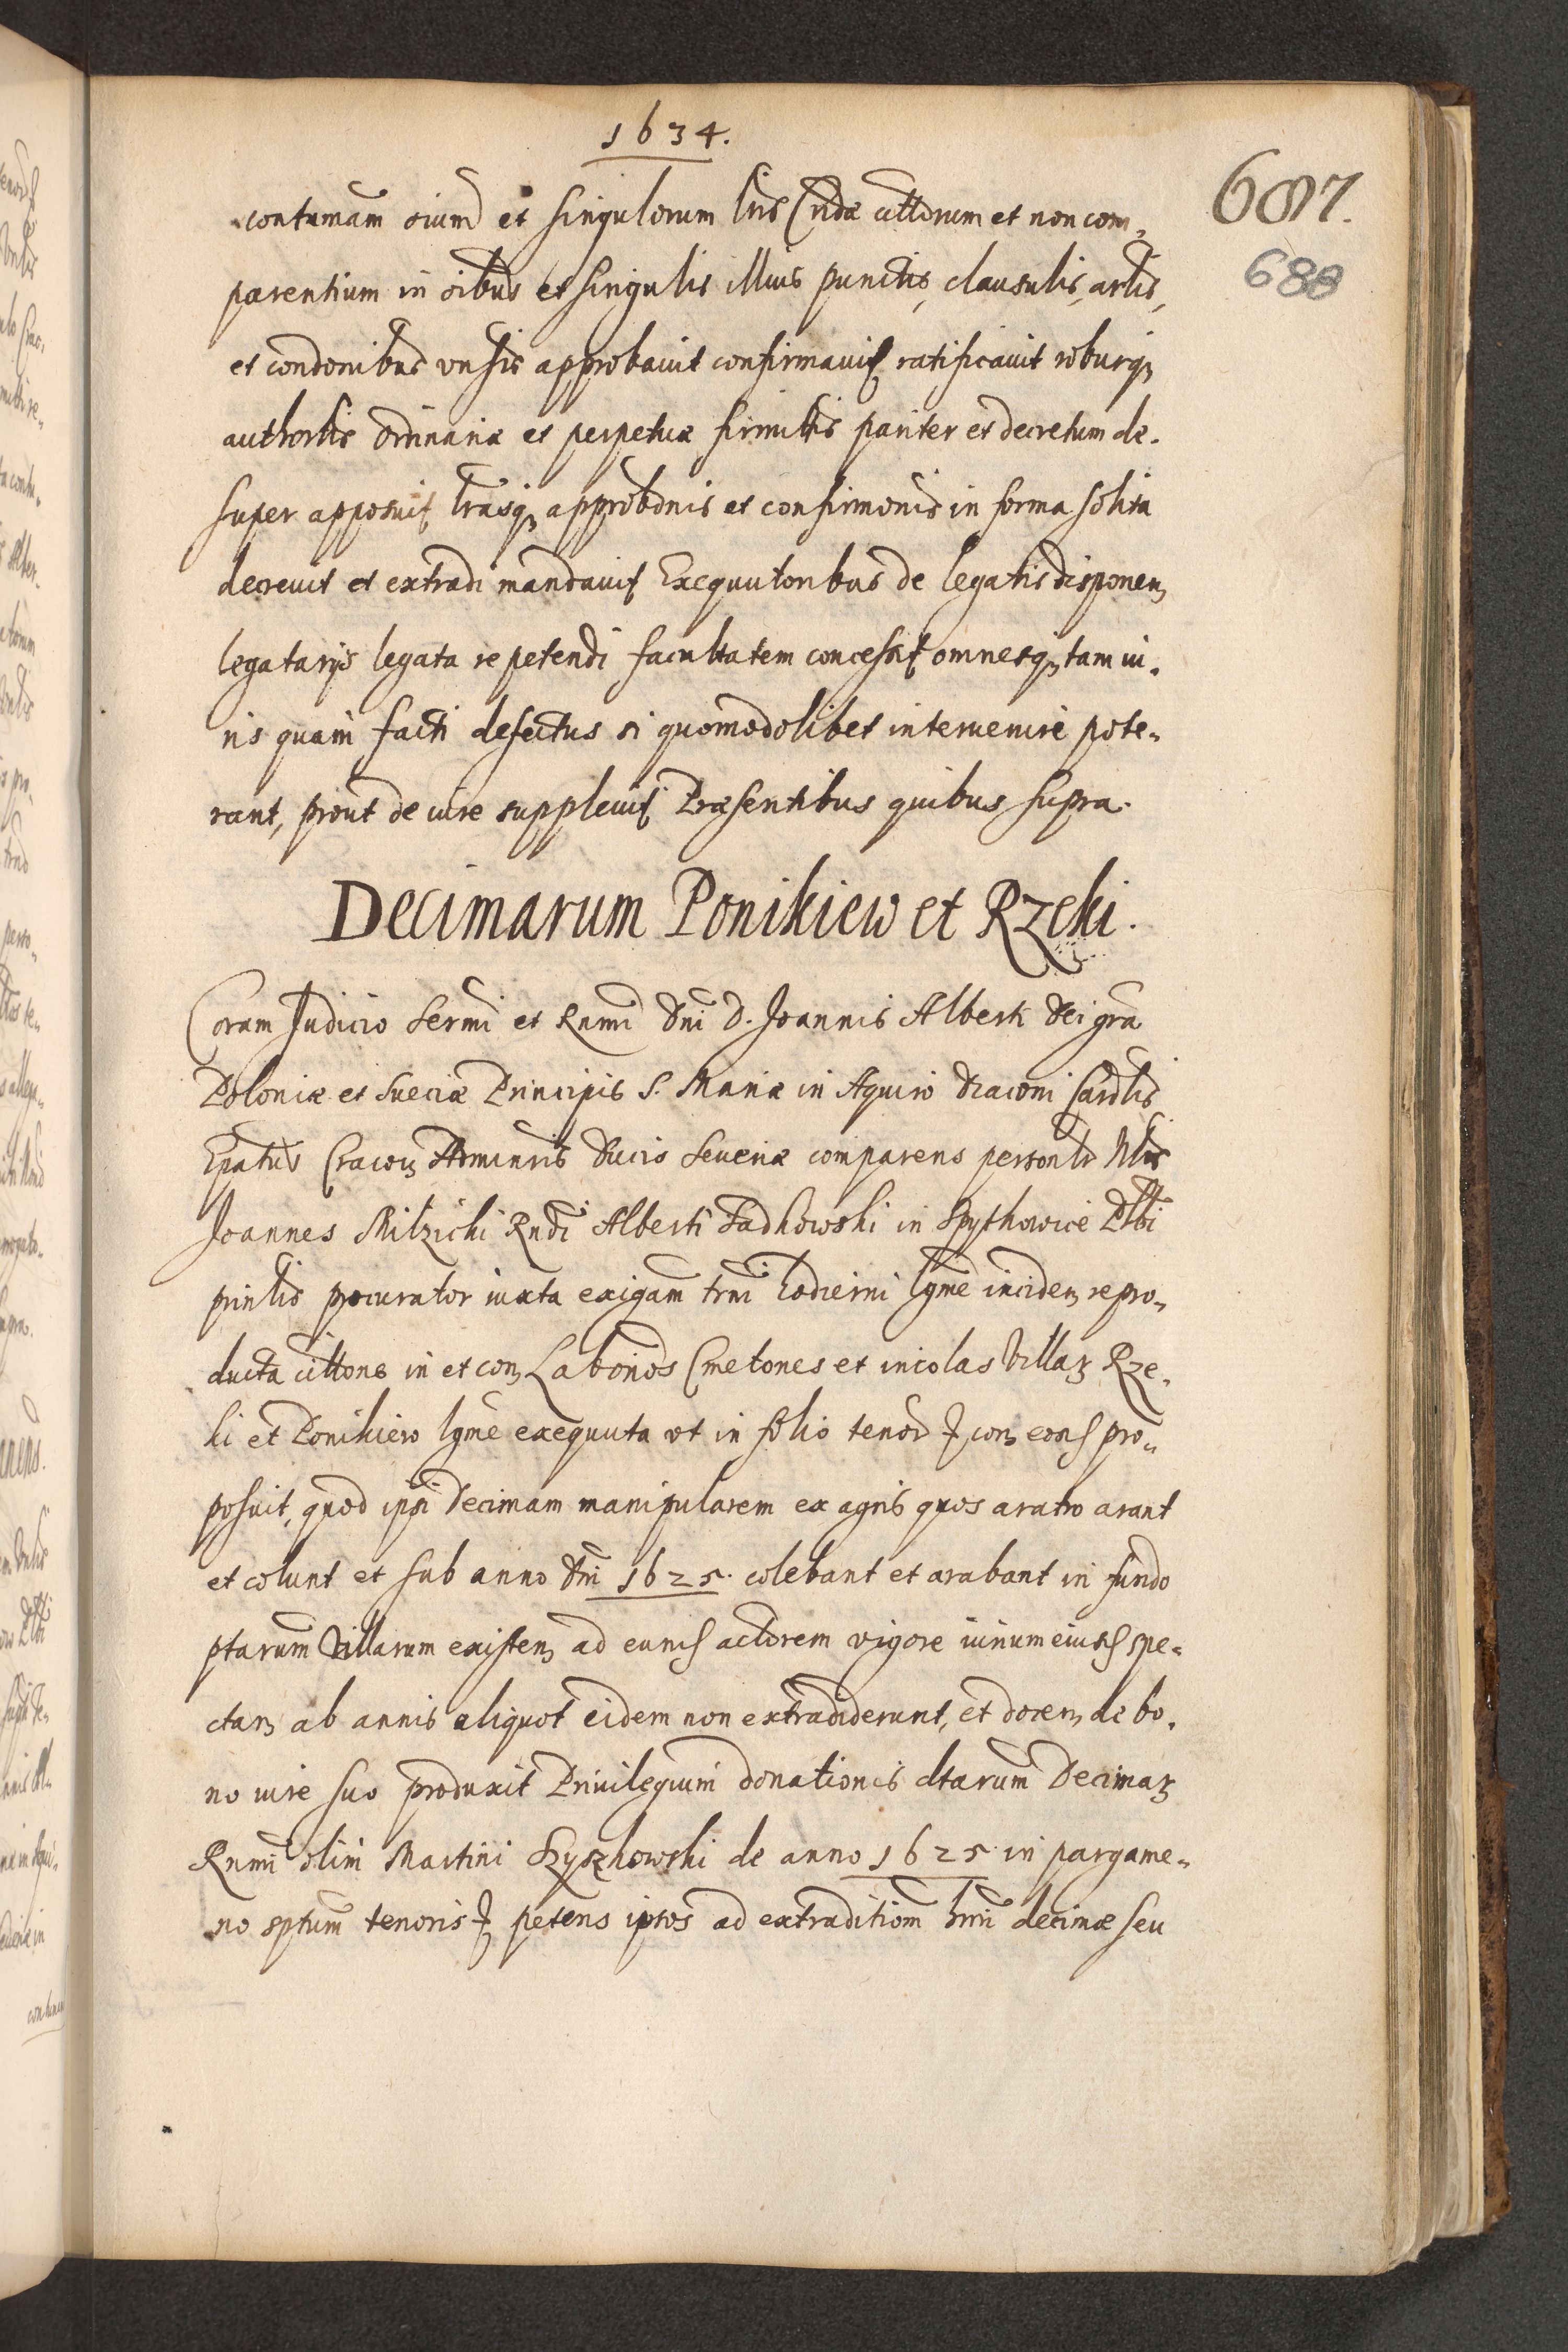 1634.
687.
688
contumam oium et singulorum lris Cridæ cittorum et non com-
parentium in oibus et singulis illius punctis, clausulis, artlis,
et condonibus vnsis approbauit confirmauit ratificauit roburq
authortis ordinariæ et perpetuæ firmittis pariter et decretum de-
super apposuit lrasq approbonis et confirmonis in forma solita
decreuit et extradi mandauit Exequutoribus de legatis disponen
legatarys legata repetendi facultatem concessit omnesq tam iu-
ris quam facti defectus si quomodolibet interuenire pote-
rant, prout de iure suppleuit Præsentibus quibus supra.
Decimarum Ponikiew et Rzeki.
Coram Judicio Sermi et Rnmi Dni D. Joannis Alberti Dei gra
Poloniæ et Sueciæ Principis S. Mariæ in Aquiro Diaconi Cardlis
Epatus Cracou Adminris Ducis Seueriæ comparens personlr Nblis
Joannes Milzicki Rndi Alberti Fadkowski in Spythowice Plbi
prinlis procurator iuxta exigam trmi hodierni lgme inciden repro-
ducta cittone in et con Laborios Cmetones et incolas Villaȝ Rze-
ki et Ponikiew lgme exequuta vt in folio tenor con eosd pro-
posuit, quod ipsi Decimam manipularem ex agris quos aratro arant
et colunt et sub anno Dni 1625. colebant et arabant in fundo
ptarum Villarum existen ad eund actorem vigore iurium eiusd spe-
ctan ab annis aliquot eidem non extradiderunt, et docen de bo-
no iure suo produxit Priuilegium donationis dtarum Decimaȝ
Rnmi olim Martini Szyszkowski de anno 1625 in pargame-
no sptum tenoris petens ipsos ad extraditiom hmi decimæ seu